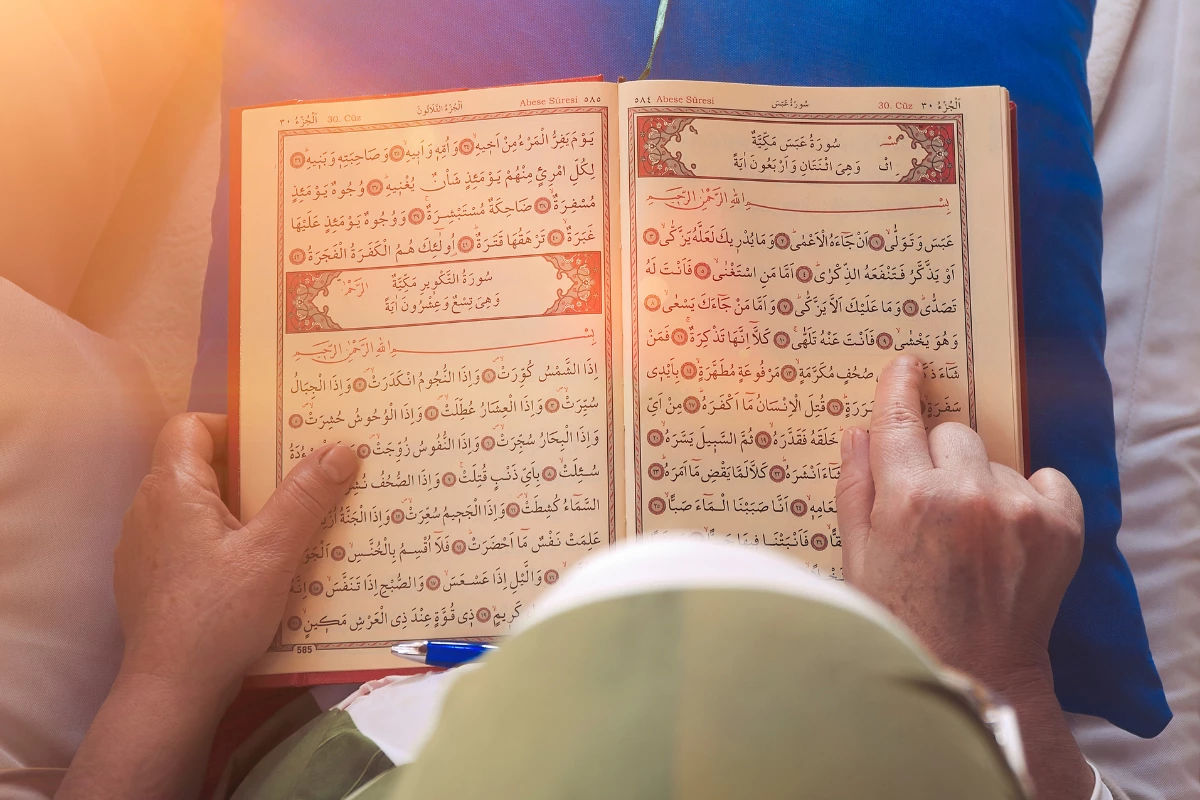 ٥٨٤ Abese Sûresi سُورَةُ عَبَسَ 30. Cüz اَلْجُزْءُ ٣٠
سُورَةُ عَبَسَ مَكِّيَّةٌ
وَهِيَ اثْنَتَانِ وَاَرْبَعُونَ اٰيَةً
بِسْــــمِ اللّٰهِ الرَّحْمٰنِ الرَّح۪يمِ
عَبَسَ وَتَوَلّٰىۙ ١ اَنْ جَٓاءَهُ الْاَعْمٰىۜ ٢ وَمَا يُدْر۪يكَ لَعَلَّهُ يَزَّكّٰىۙ ٣
اَوْ يَذَّكَّرُ فَتَنْفَعَهُ الذِّكْرٰىۜ ٤ اَمَّا مَنِ اسْتَغْنٰىۙ ٥ فَاَنْتَ لَهُ
تَصَدّٰىۜ ٦ وَمَا عَلَيْكَ اَلَّا يَزَّكّٰىۜ ٧ وَاَمَّا مَنْ جَٓاءَكَ يَسْعٰىۙ ٨
وَهُوَ يَخْشٰىۙ ٩ فَاَنْتَ عَنْهُ تَلَهّٰىۚ ١٠ كَلَّٓا اِنَّهَا تَذْكِرَةٌۚ ١١ فَمَنْ
شَٓاءَ صُحُفٍ مُكَرَّمَةٍۙ ١٣ مَرْفُوعَةٍ مُطَهَّرَةٍۙ ١٤ بِاَيْد۪ي
سَفَرَةٍۙ ١٦ قُتِلَ الْاِنْسَانُ مَٓا اَكْفَرَهُۜ ١٧ مِنْ اَيِّ
خَلَقَهُ فَقَدَّرَهُۙ ١٩ ثُمَّ السَّب۪يلَ يَسَّرَهُۙ ٢٠
اَنْشَرَهُۜ ٢٢ كَلَّا لَمَّا يَقْضِ مَٓا اَمَرَهُۜ ٢٣
٢٤ اَنَّا صَبَبْنَا الْمَٓاءَ صَباًّۙ ٢٥
٢٦ فَاَنْبَتْنَا ف۪يهَا
اَلْجُزْءُ ٣٠ 30. Cüz اَلْجُزْءُ الثَّلَاثُونَ Abese Sûresi ٥٨٥
يَوْمَ يَفِرُّ الْمَرْءُ مِنْ اَخ۪يهِۙ ٣٤ وَاُمِّه۪ وَاَب۪يهِۙ ٣٥ وَصَاحِبَتِه۪ وَبَن۪يهِۜ ٣٦
لِكُلِّ امْرِئٍ مِنْهُمْ يَوْمَئِذٍ شَأْنٌ يُغْن۪يهِۜ ٣٧ وُجُوهٌ يَوْمَئِذٍ
مُسْفِرَةٌۙ ٣٨ ضَاحِكَةٌ مُسْتَبْشِرَةٌۚ ٣٩ وَوُجُوهٌ يَوْمَئِذٍ عَلَيْهَا
غَبَرَةٌۙ ٤٠ تَرْهَقُهَا قَتَرَةٌۜ ٤١ اُو۬لٰٓئِكَ هُمُ الْكَفَرَةُ الْفَجَرَةُ ٤٢
سُورَةُ التَّكْو۪يرِ مَكِّيَّةٌ
وَهِيَ تِسْعٌ وَعِشْرُونَ اٰيَةً
بِسْــــمِ اللّٰهِ الرَّحْمٰنِ الرَّح۪يمِ
اِذَا الشَّمْسُ كُوِّرَتْۙ ١ وَاِذَا النُّجُومُ انْكَدَرَتْۙ ٢ وَاِذَا الْجِبَالُ
سُيِّرَتْۙ ٣ وَاِذَا الْعِشَارُ عُطِّلَتْۙ ٤ وَاِذَا الْوُحُوشُ حُشِرَتْۙ ٥
وَاِذَا الْبِحَارُ سُجِّرَتْۙ ٦ وَاِذَا النُّفُوسُ زُوِّجَتْۙ ٧
سُئِلَتْۙ ٨ بِاَيِّ ذَنْبٍ قُتِلَتْۚ ٩ وَاِذَا الصُّحُفُ
السَّمَٓاءُ كُشِطَتْۙ ١١ وَاِذَا الْجَح۪يمُ سُعِّرَتْۙ ١٢ وَاِذَا الْجَنَّةُ
عَلِمَتْ نَفْسٌ مَٓا اَحْضَرَتْۜ ١٤ فَلَٓا اُقْسِمُ بِالْخُنَّسِۙ ١٥
وَالَّيْلِ اِذَا عَسْعَسَۙ ١٧ وَالصُّبْحِ اِذَا تَنَفَّسَۙ ١٨ اِنَّهُ
كَر۪يمٍۙ ١٩ ذ۪ي قُوَّةٍ عِنْدَ ذِي الْعَرْشِ مَك۪ينٍۙ ٢٠
585